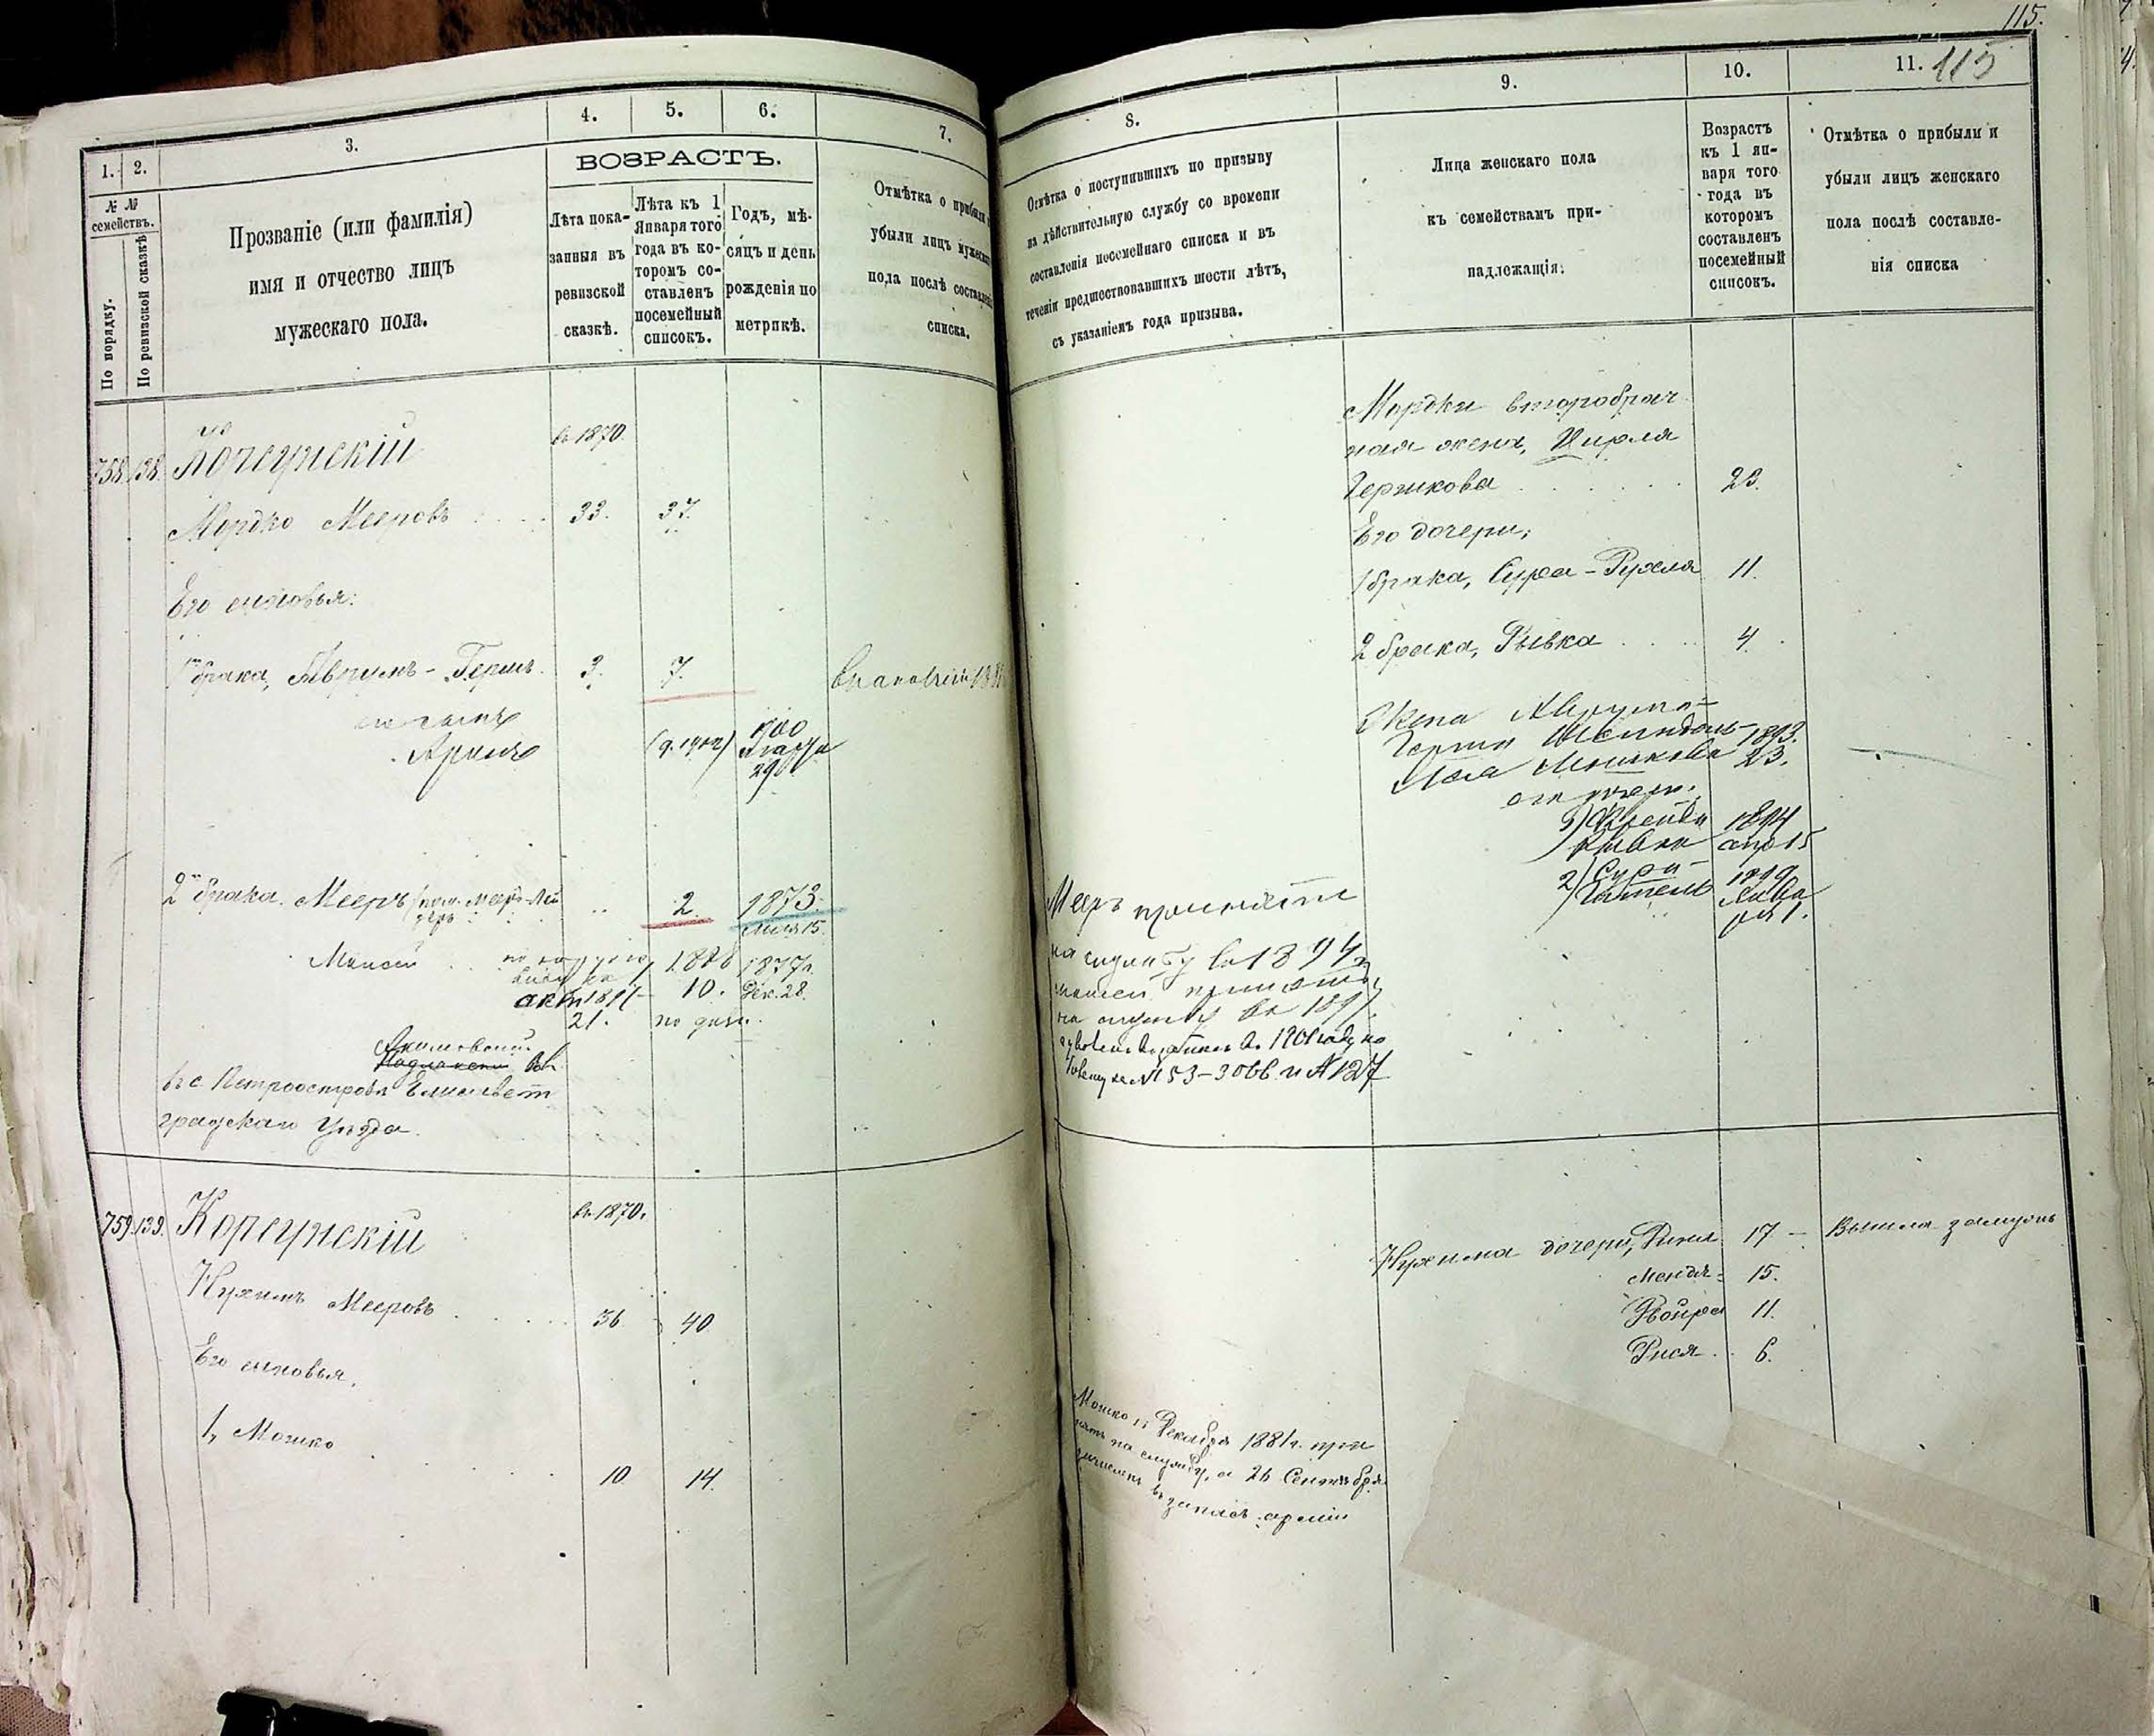 1. 2. 3. 4. 5. 6. 7.
№ №
семействъ.
По порядку.
По ревизской сказкѣ
Прозваніе (или фамилія)
имя и отчество лицъ
мужескаго пола.
ВОЗРАСТЪ.
Лѣта пока-
занныя въ
ревизской
сказкѣ.
Лѣта къ 1
Января того
года въ ко-
торомъ со-
ставленъ
посемейный
списокъ.
Годъ, мѣ-
сяцъ и день
рожденія по
метрикѣ.
Отмѣтка о прибыли
убыли лицъ мужеска
пола послѣ составле
списка.
758. 138. Корсунскій въ 1870.
Мордко Мееровъ 33. 37.
Его сыновья:
1го брака, Аврумъ-Гершъ 3. 7.
его сынъ
Арышъ 1900
Марта
29
2го брака. Мееръ 2. 1873.
15.
Моисей 1886 1877г.
10. Дек. 28.
21. по
въ с. Петроостровъ Елисавет
градскаго Уѣзда.
759. 139. Корсунскій въ 1870.
Нухимъ Мееровъ 36 40
Его сыновья,
1, Мошко 10 14.
115.
115
8. 9. 10. 11.
Отмѣтка о поступившихъ по призыву
на дѣйствительную службу со времени
составленія посемейнаго списка и въ
теченіи предшествовавшихъ шести лѣтъ,
съ указаніемъ года призыва.
Лица женскаго пола
къ семействамъ при-
надлежащія:
Возрастъ
къ 1 ян-
варя того
года въ
которомъ
составленъ
посемейный
списокъ.
Отмѣтка о прибыли и
убыли лицъ женскаго
пола послѣ составле-
нія списка
Мордки второбрач
ная жена, Цирля
Гершкова 23.
Его дочери:
1 брака, Сура-Рухля 11.
2 брака, Рывка 4.
Жена Аврума-
Герша Шейндль- 1873.
Мошкова 23.
его дочери:
1) Фрейда 1894
Рывка апр 15
2) Сура- 1899
Мееръ принятъ
на службу въ 1894г
Моисей принятъ
на службу въ 1897.
въ 1901 году по
№ 127
Нухима дочери, 17 — Вышла замужъ
15.
Двойра 11.
Рися 6.
Мошко Декабря 1881г. при
нятъ на службу, а 26 Сентября
зачисленъ въ запасъ арміи